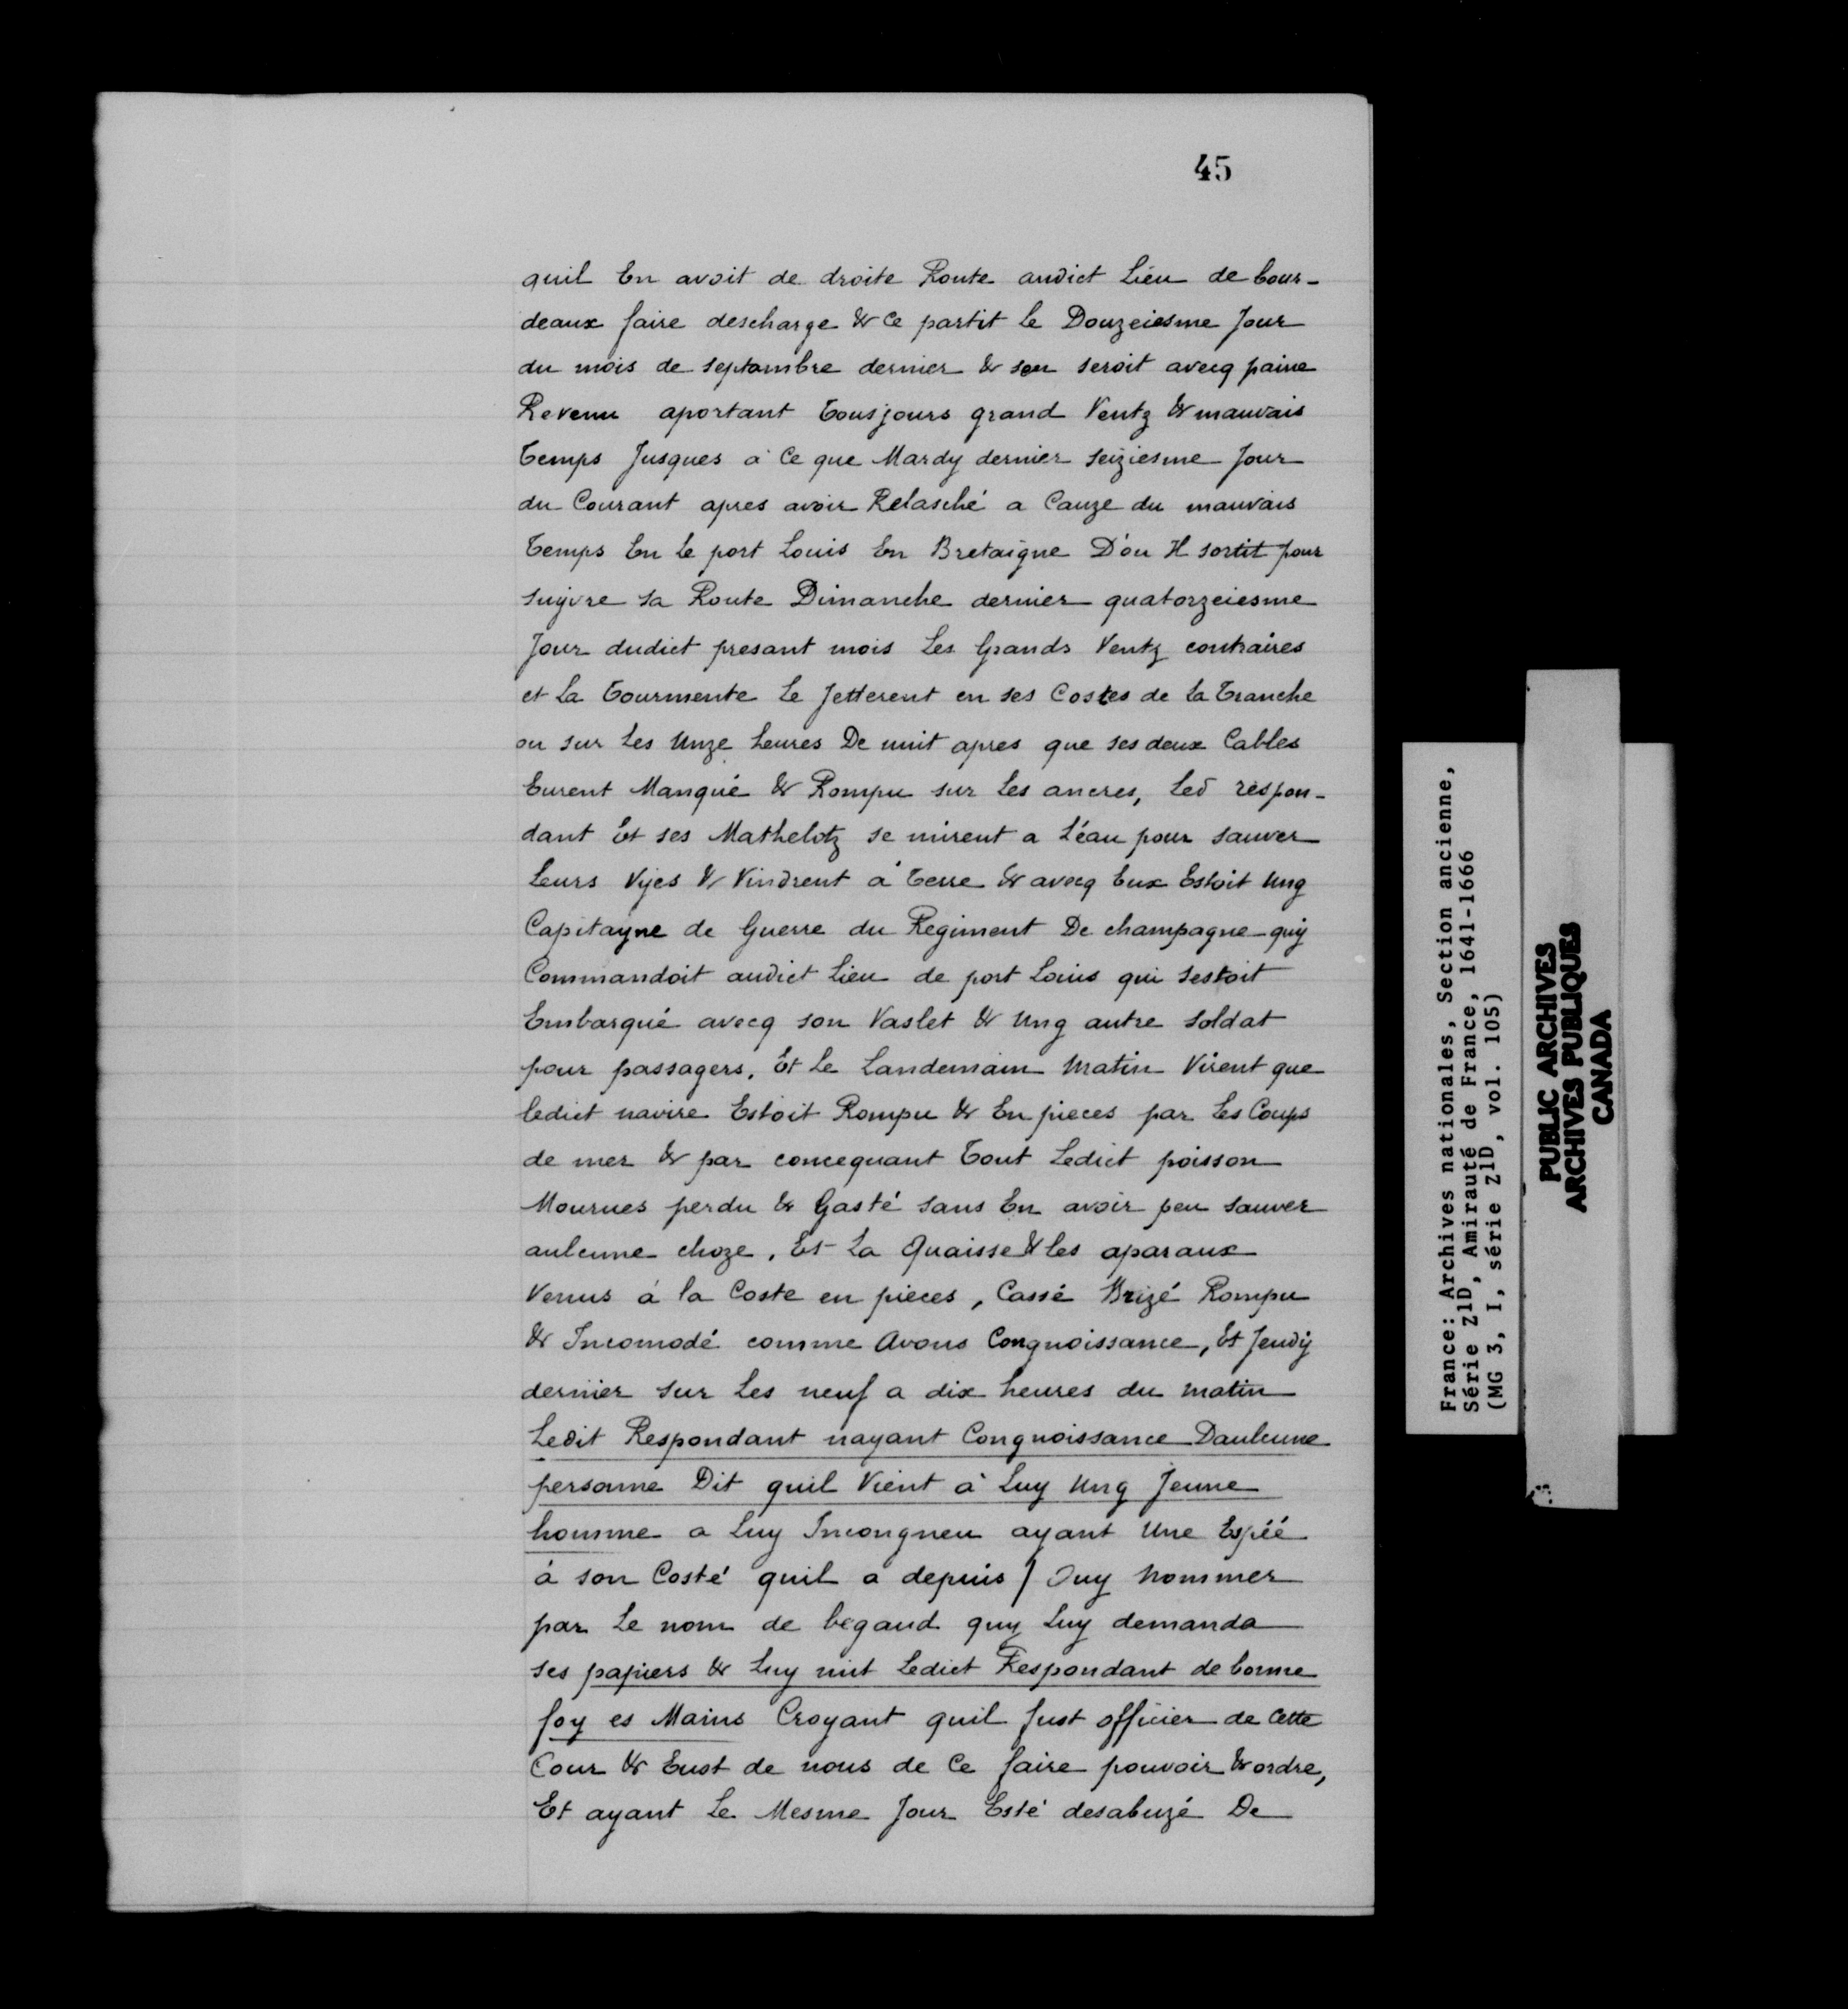 45
quil En avoit de droite Route audict Lieu de bour-
deaux faire descharge & ce partit le Douzeiesme Jour
du mois de septambre dernier & sen seroit avecq paine
Revenu aportant Tousjours grand Ventz & mauvais
Temps Jusques à Ce que Mardy dernier seiziesme Jour
du Courant apres avoir Relasché a Cauze du mauvais
Temps En le port Louis En Bretaigne D'ou Il sortit pour
suijvre sa Route Dimanche dernier quatorzeiesme
Jour dudict presant mois Les Grands Ventz contraires
et La Tourmente Le Jetterent en ses Costes de la Tranche
ou sur Les Unze heures De nuit apres que ses deux Cables
Eurent Manqué & Rompu sur Les ancres, Led respon-
dant Et ses Mathelotz se mirent a L'éau pour sauver
Leurs Vijes & Vindrent à Terre & avecq Eux Estoit Ung
Capitayne de Guerre du Regiment De champagne quij
Commandoit audict Lieu de port Louis qui sestoit
Embarqué avecq son Vaslet & Ung autre soldat
pour passagers. Et Le Landemain Matin Virent que
ledict navire Estoit Rompu & En pieces par Les Coups
de mer & par concequant Tout Ledict poisson
Mourues perdu & Gasté sans En avoir peu sauver
aulcune choze. Et La Quaisse & les aparaux
Venus à la Coste en pièces, Cassé Brizé Rompu
& Incomodé comme Avons Congnoissance, Et Jeudij
dernier sur Les neuf a dix heures du matin
Ledit Respondant nayant Congnoissance Daulcune
personne Dit quil Vient à Luy Ung Jeune
homme a Luy Incongneu ayant Une Espéé
à son Costé quil a depuis / Ouy Nommer
par Le nom de begaud quy Luy demanda
ses papiers & Luy mit Ledict Respondant de bonne
foy es Mains Croyant quil fust officier de Cette
Cour & Eust de nous de Ce faire pouvoir & ordre,
Et ayant Le Mesme Jour Esté desabuzé De
France: Archives nationales, Section ancienne,
Série Z1D, Amirauté de France, 1641-1666
(MG 3, I, série Z1D, vol. 105)
PUBLIC ARCHIVES
ARCHIVES PUBLIQUES
CANADA